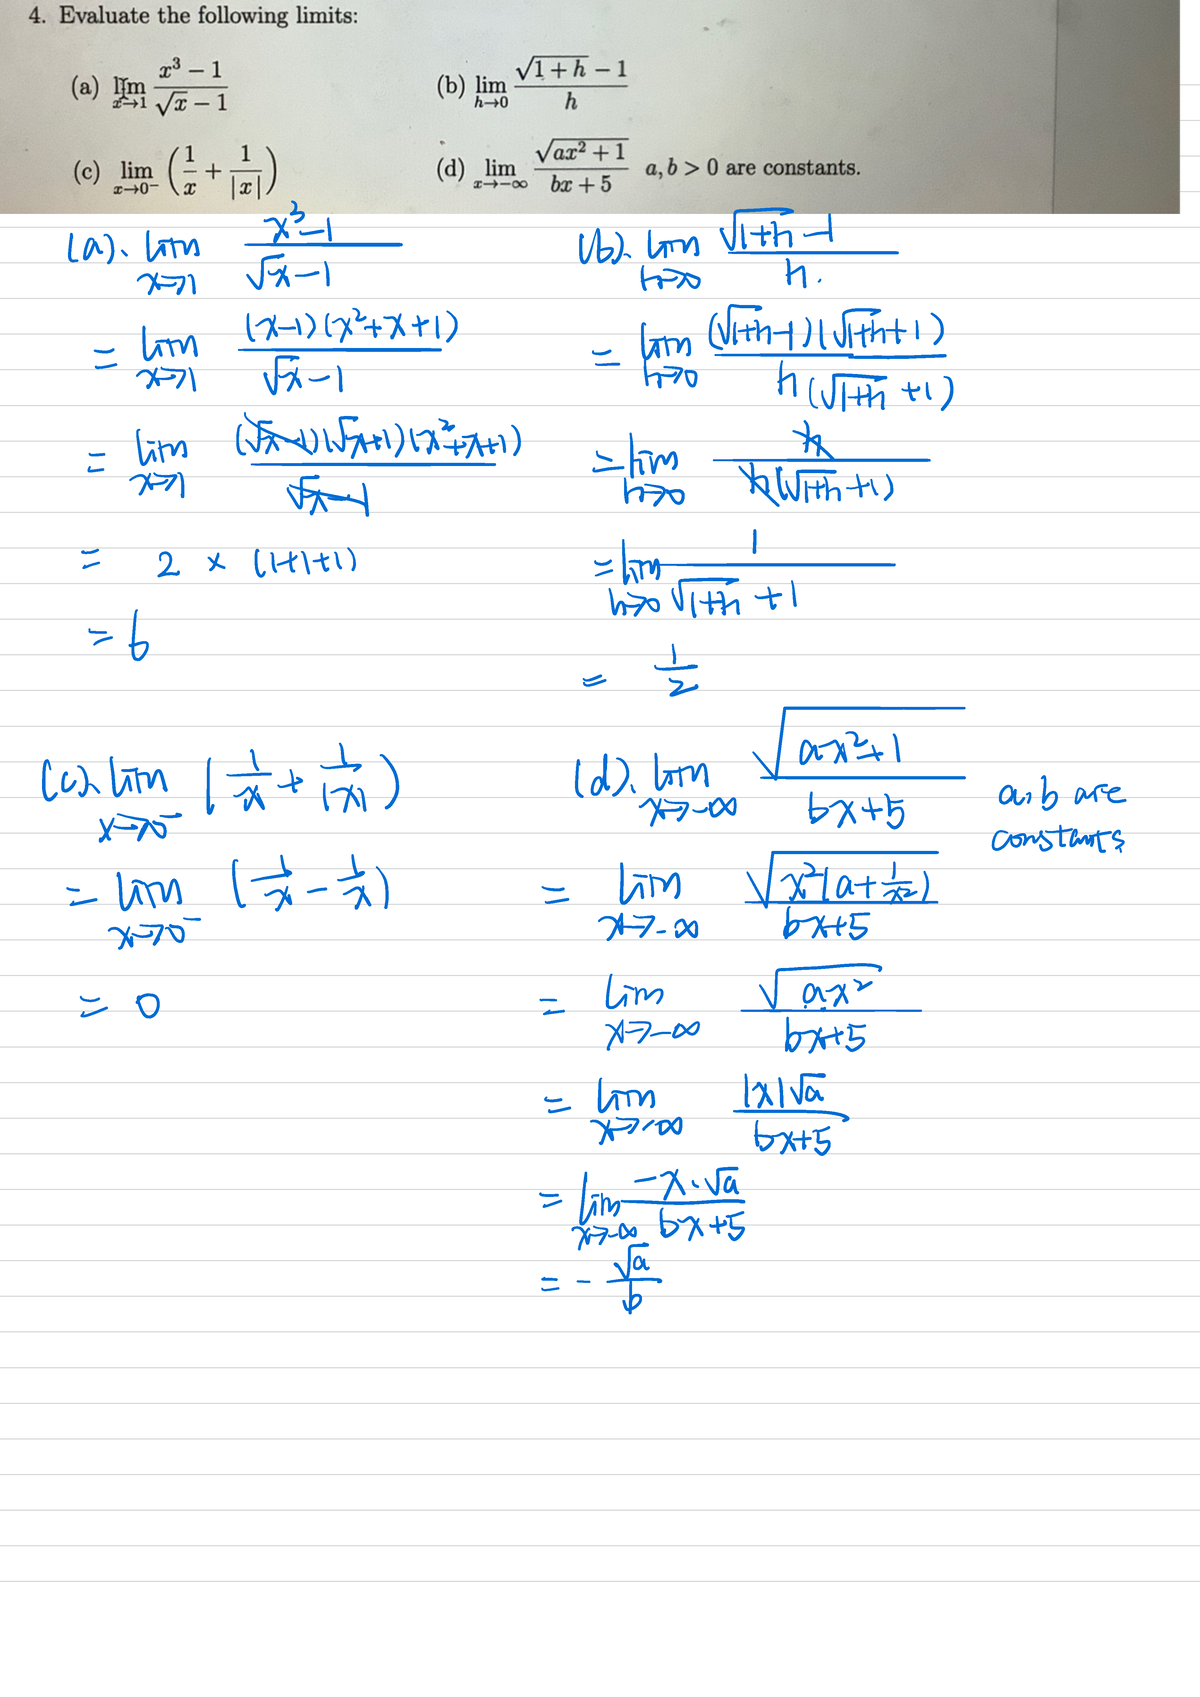 4. Evaluate the following limits:
(a) lim x→1 (x³ − 1)/(√x − 1)
(b) lim h→0 (√(1 + h) − 1)/h
(c) lim x→0⁻ (1/x + 1/|x|)
(d) lim x→−∞ √(ax² + 1)/(bx + 5) a, b > 0 are constants.
(a). lim x→1 (x³−1)/(√x−1)
= lim x→1 (x−1)(x²+x+1)/(√x−1)
= lim x→1 (√x−1)(√x+1)(x²+x+1)/(√x−1)
= 2 × (1+1+1)
= 6
(b). lim h→0 (√(1+h)−1)/h.
= lim h→0 (√(1+h)−1)(√(1+h)+1)/(h(√(1+h)+1))
= lim h→0 h/(h(√(1+h)+1))
= lim h→0 1/(√(1+h)+1)
= 1/2
(c). lim x→0⁻ (1/x + 1/|x|)
= lim x→0⁻ (1/x − 1/x)
= 0
(d). lim x→−∞ √(ax²+1)/(bx+5) a,b are
constants
= lim x→−∞ √(x²(a+1/x²))/(bx+5)
= lim x→−∞ √(ax²)/(bx+5)
= lim x→−∞ |x|√a/(bx+5)
= lim x→−∞ −x·√a/(bx+5)
= −√a/b